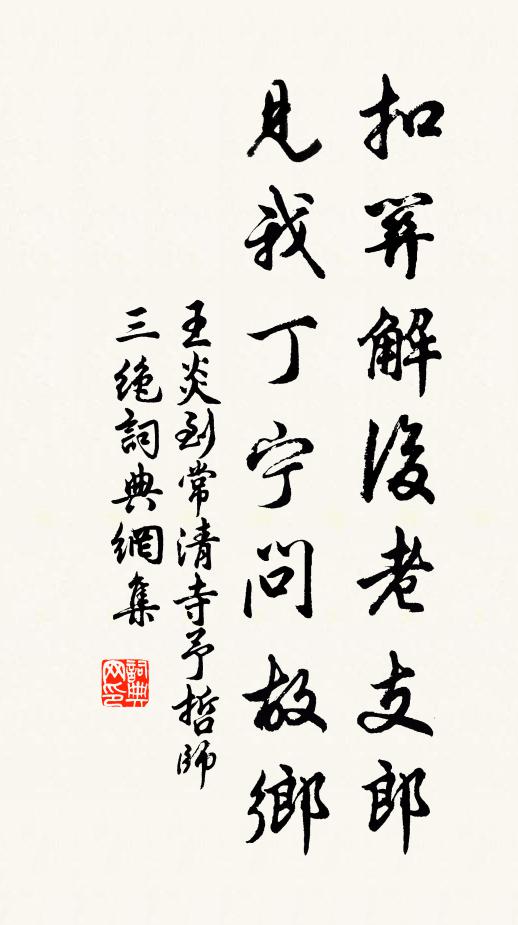 扣解後老支郎
見我丁宁問故鄉
王炎到常清寺予哲師
三絶詞典網集
詞典网印